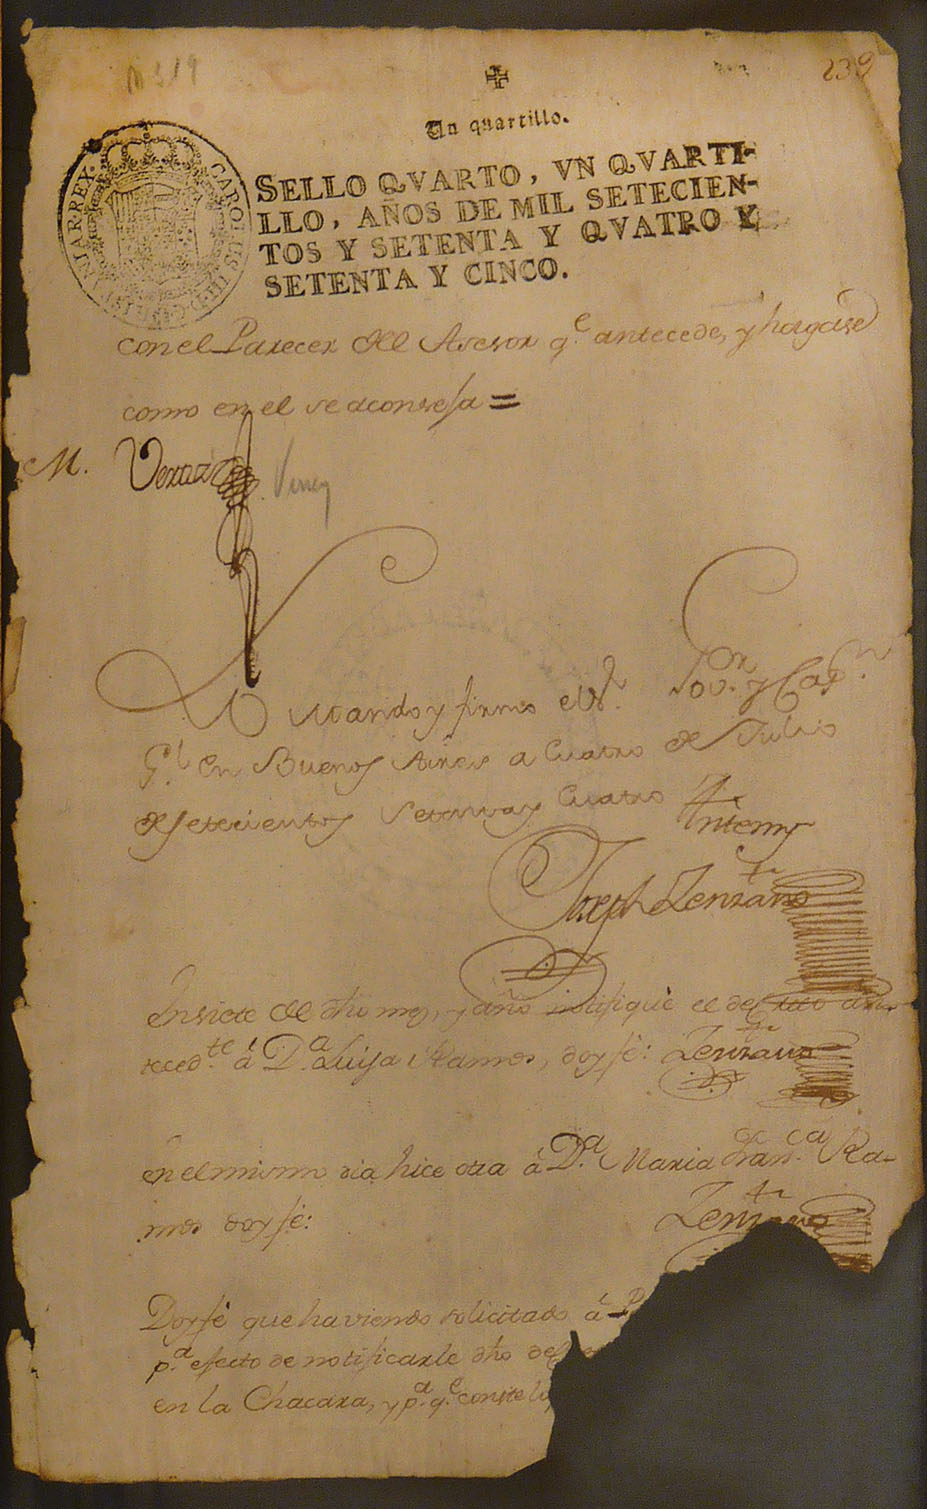 239
Un quartillo.
CAROLUS III D G HISPANIAR REX
SELLO QVARTO, VN QVARTI-
LLO, AÑOS DE MIL SETECIEN-
TOS Y SETENTA Y QVATRO Y
SETENTA Y CINCO.
con el Parecer del Asesor q.e antecede, y hagase
como en el se aconseja =
M. Vertiz
Lo Mando y firmo el S.r Gov.or y Cap.n
G.l en Buenos Aires a Cuatro de Julio
de setecientos setenta y Cuatro
Antemy
Joseph Zenzano
En siete del dho mes, y año notifique el decreto ante-
teced.te á D.a Luisa Ramos, doy fé: Zenzano
en el mismo dia hice otra á D.a Maria Fran.ca Ra-
mos doy fé:
Zenzano
Doy fé que haviendo solicitado á
p.a efecto de notificarle dho
en la Chacara, y p.a q.e conste lo